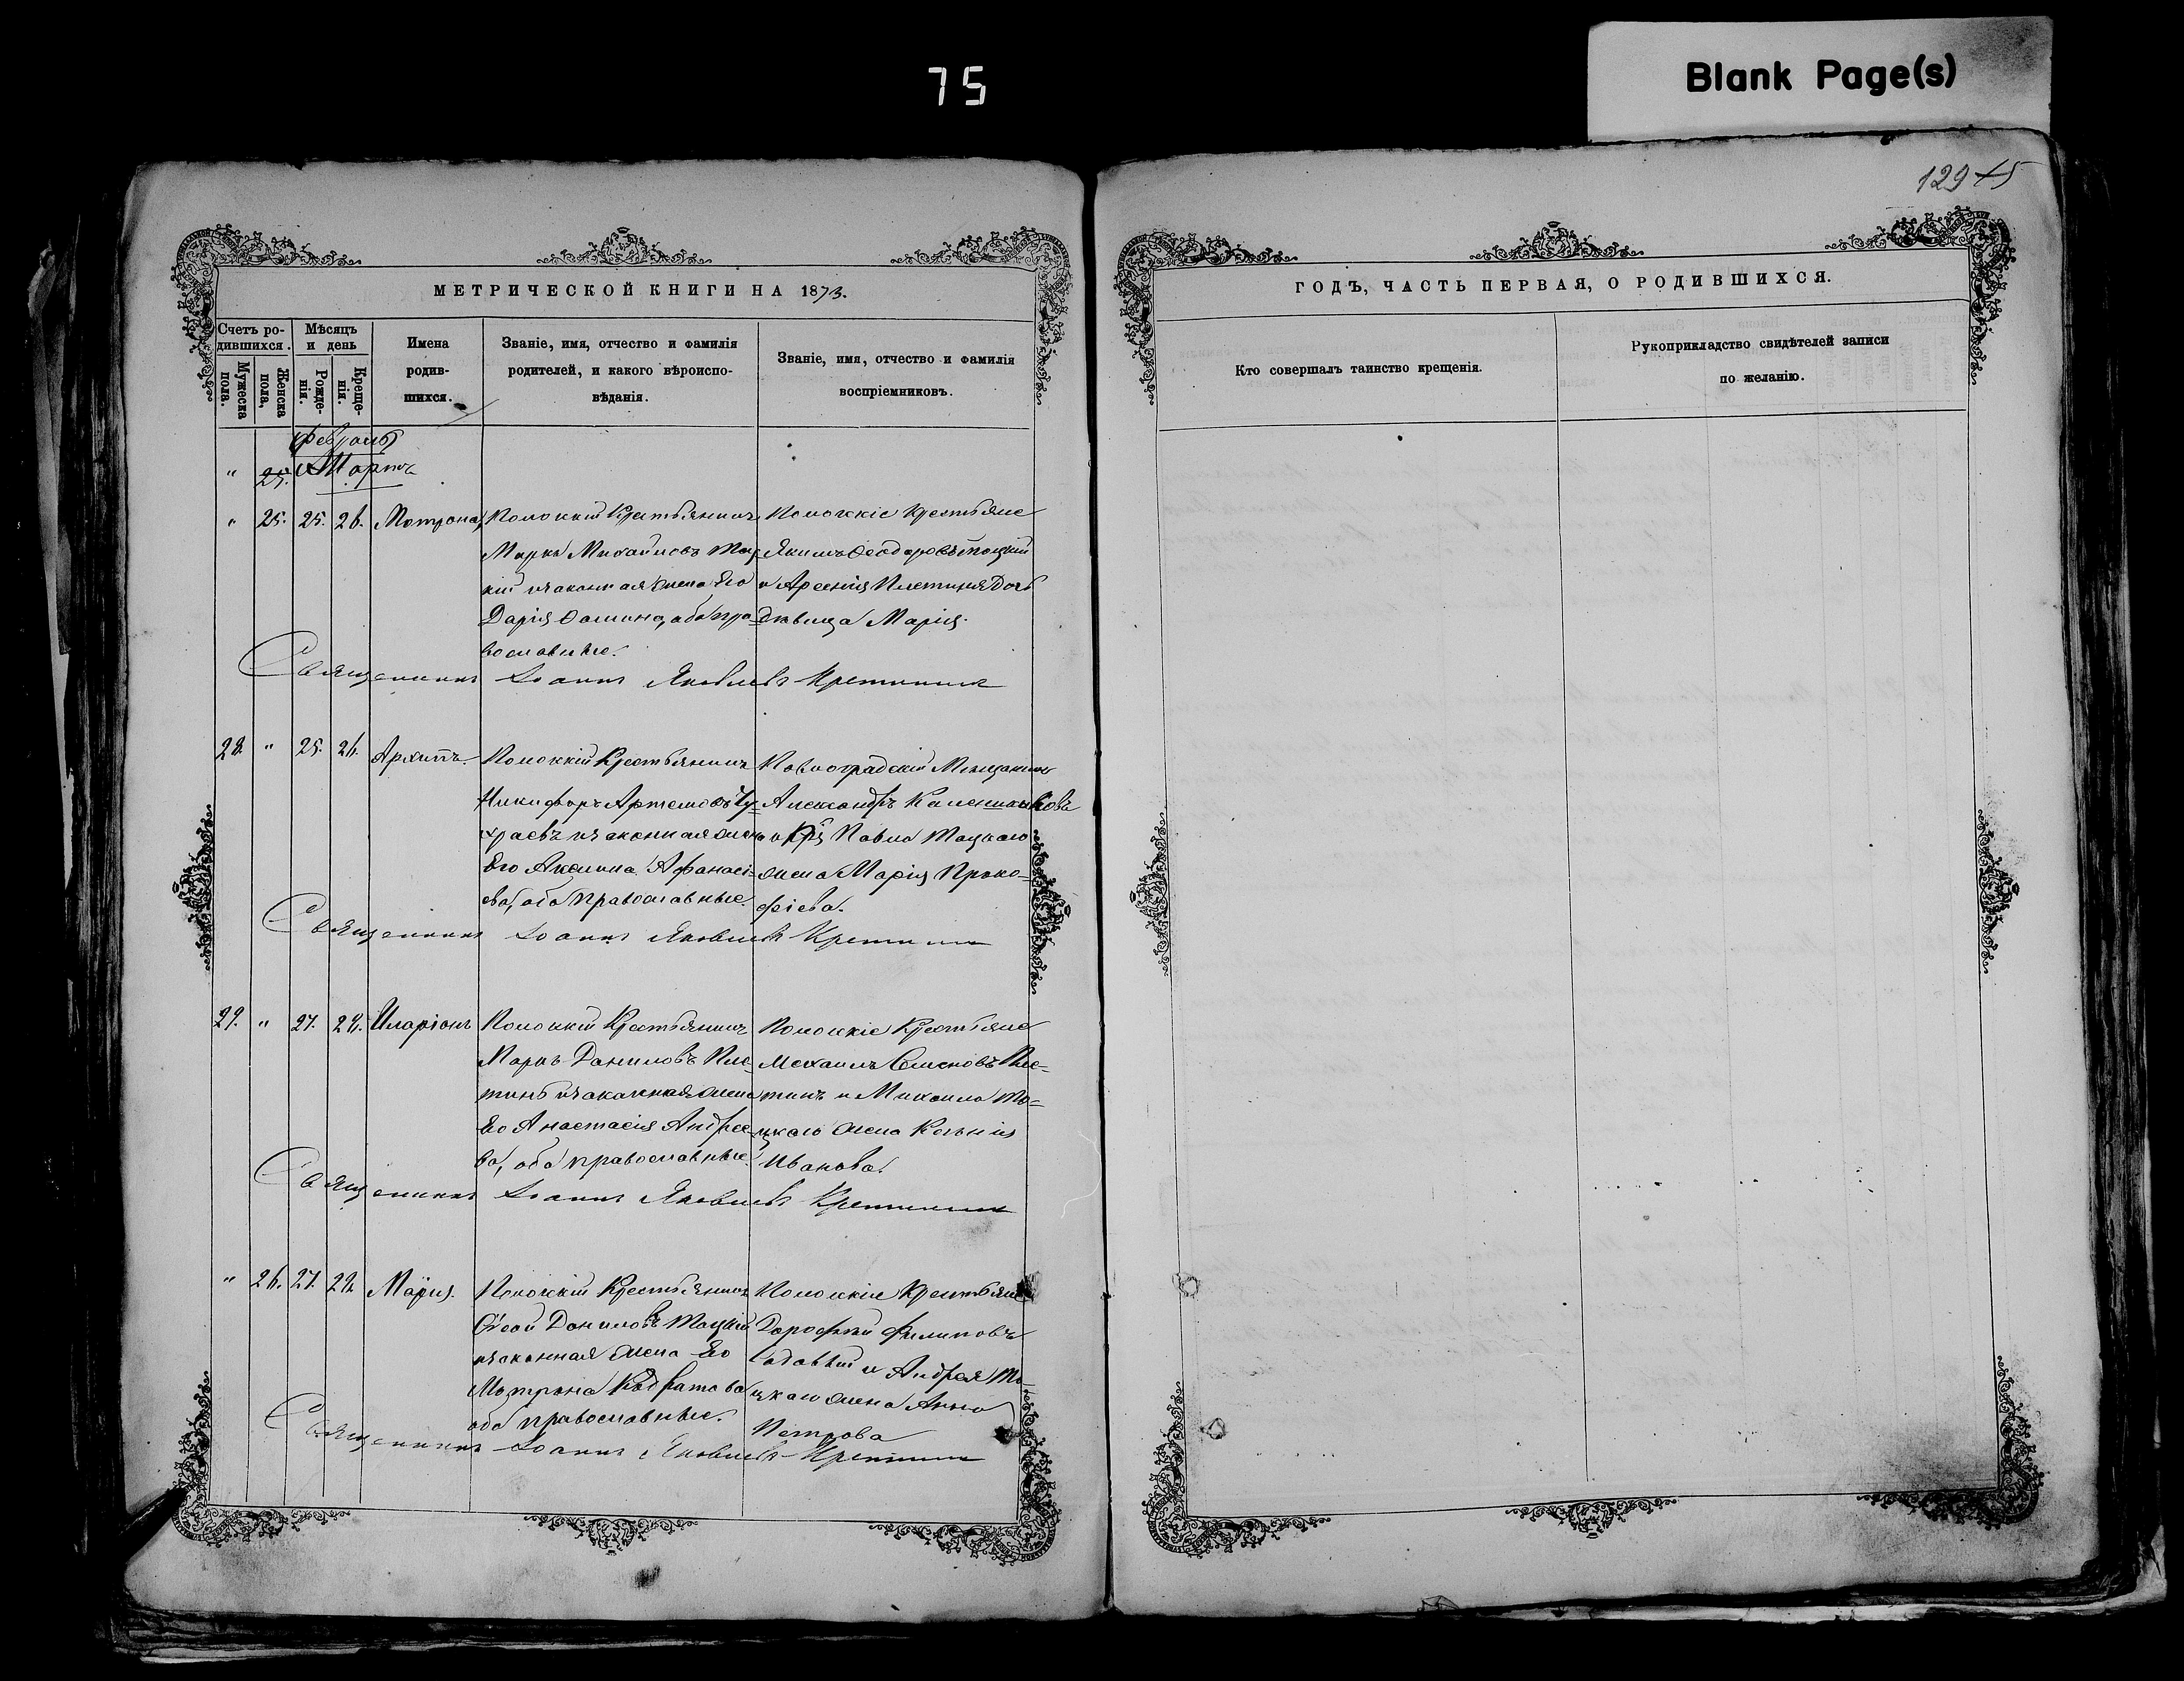 75
Blank Page(s)
129 75
МЕТРИЧЕСКОЙ КНИГИ НА 1873.
Счетъ ро-
дившихся.
Мужеска
пола.
Женска
пола,
Мѣсяцъ
и день
Рожде-
нія.
Креще-
нія.
Имена
родив-
шихся.
Званіе, имя, отчество и фамилія
родителей, и какого вѣроиспо-
вѣданія.
Званіе, имя, отчество и фамилія
воспріемниковъ.
Февраль
" 25. Мартъ
" 25. 25. 26. Мотрона,
Крестьянинъ
Марко Михайловъ Тац-
кій и законная жена Его
Дарія Фомина, оба пра-
вославные.
Крестьяне
Якимъ Феодоровъ Тацкій
и Арсенія Плетиня дочь
дѣвица Марія.
Священникъ Іоаннъ Яковлевъ
28. " 25. 26. Архипъ.
Крестьянинъ
Никифоръ Артемовъ
и законная жена
Его Аксинна Афанасі-
ева, оба православные.
Мѣщанинъ
Александръ
Павла Тацкаго
жена Марія Проко-
фіева.
Священникъ Іоаннъ Яковлевъ
29. " 27. 29. Иларіонъ
Крестьянинъ
Маркъ Даниловъ Пле-
тинь и законная жена
Его Анастасія Андрее-
ва, оба православные.
Крестьяне
Михаилъ Семеновъ Пле-
тинь и Михаила Та-
цкаго жена Ксенія
Иванова.
Священникъ Іоаннъ Яковлевъ
" 26. 27. 29. Марія.
Крестьянинъ
Даниловъ Тацкій
и законная жена Его
Мотрона Кодратова
оба православные.
Крестьяне
Дорофей Филиповъ
и Андрея Та-
цкаго жена Анна
Петрова
Священникъ Іоаннъ Яковлевъ
ГОДЪ, ЧАСТЬ ПЕРВАЯ, О РОДИВШИХСЯ.
Кто совершалъ таинство крещенія.
Рукоприкладство свидѣтелей записи
по желанію.